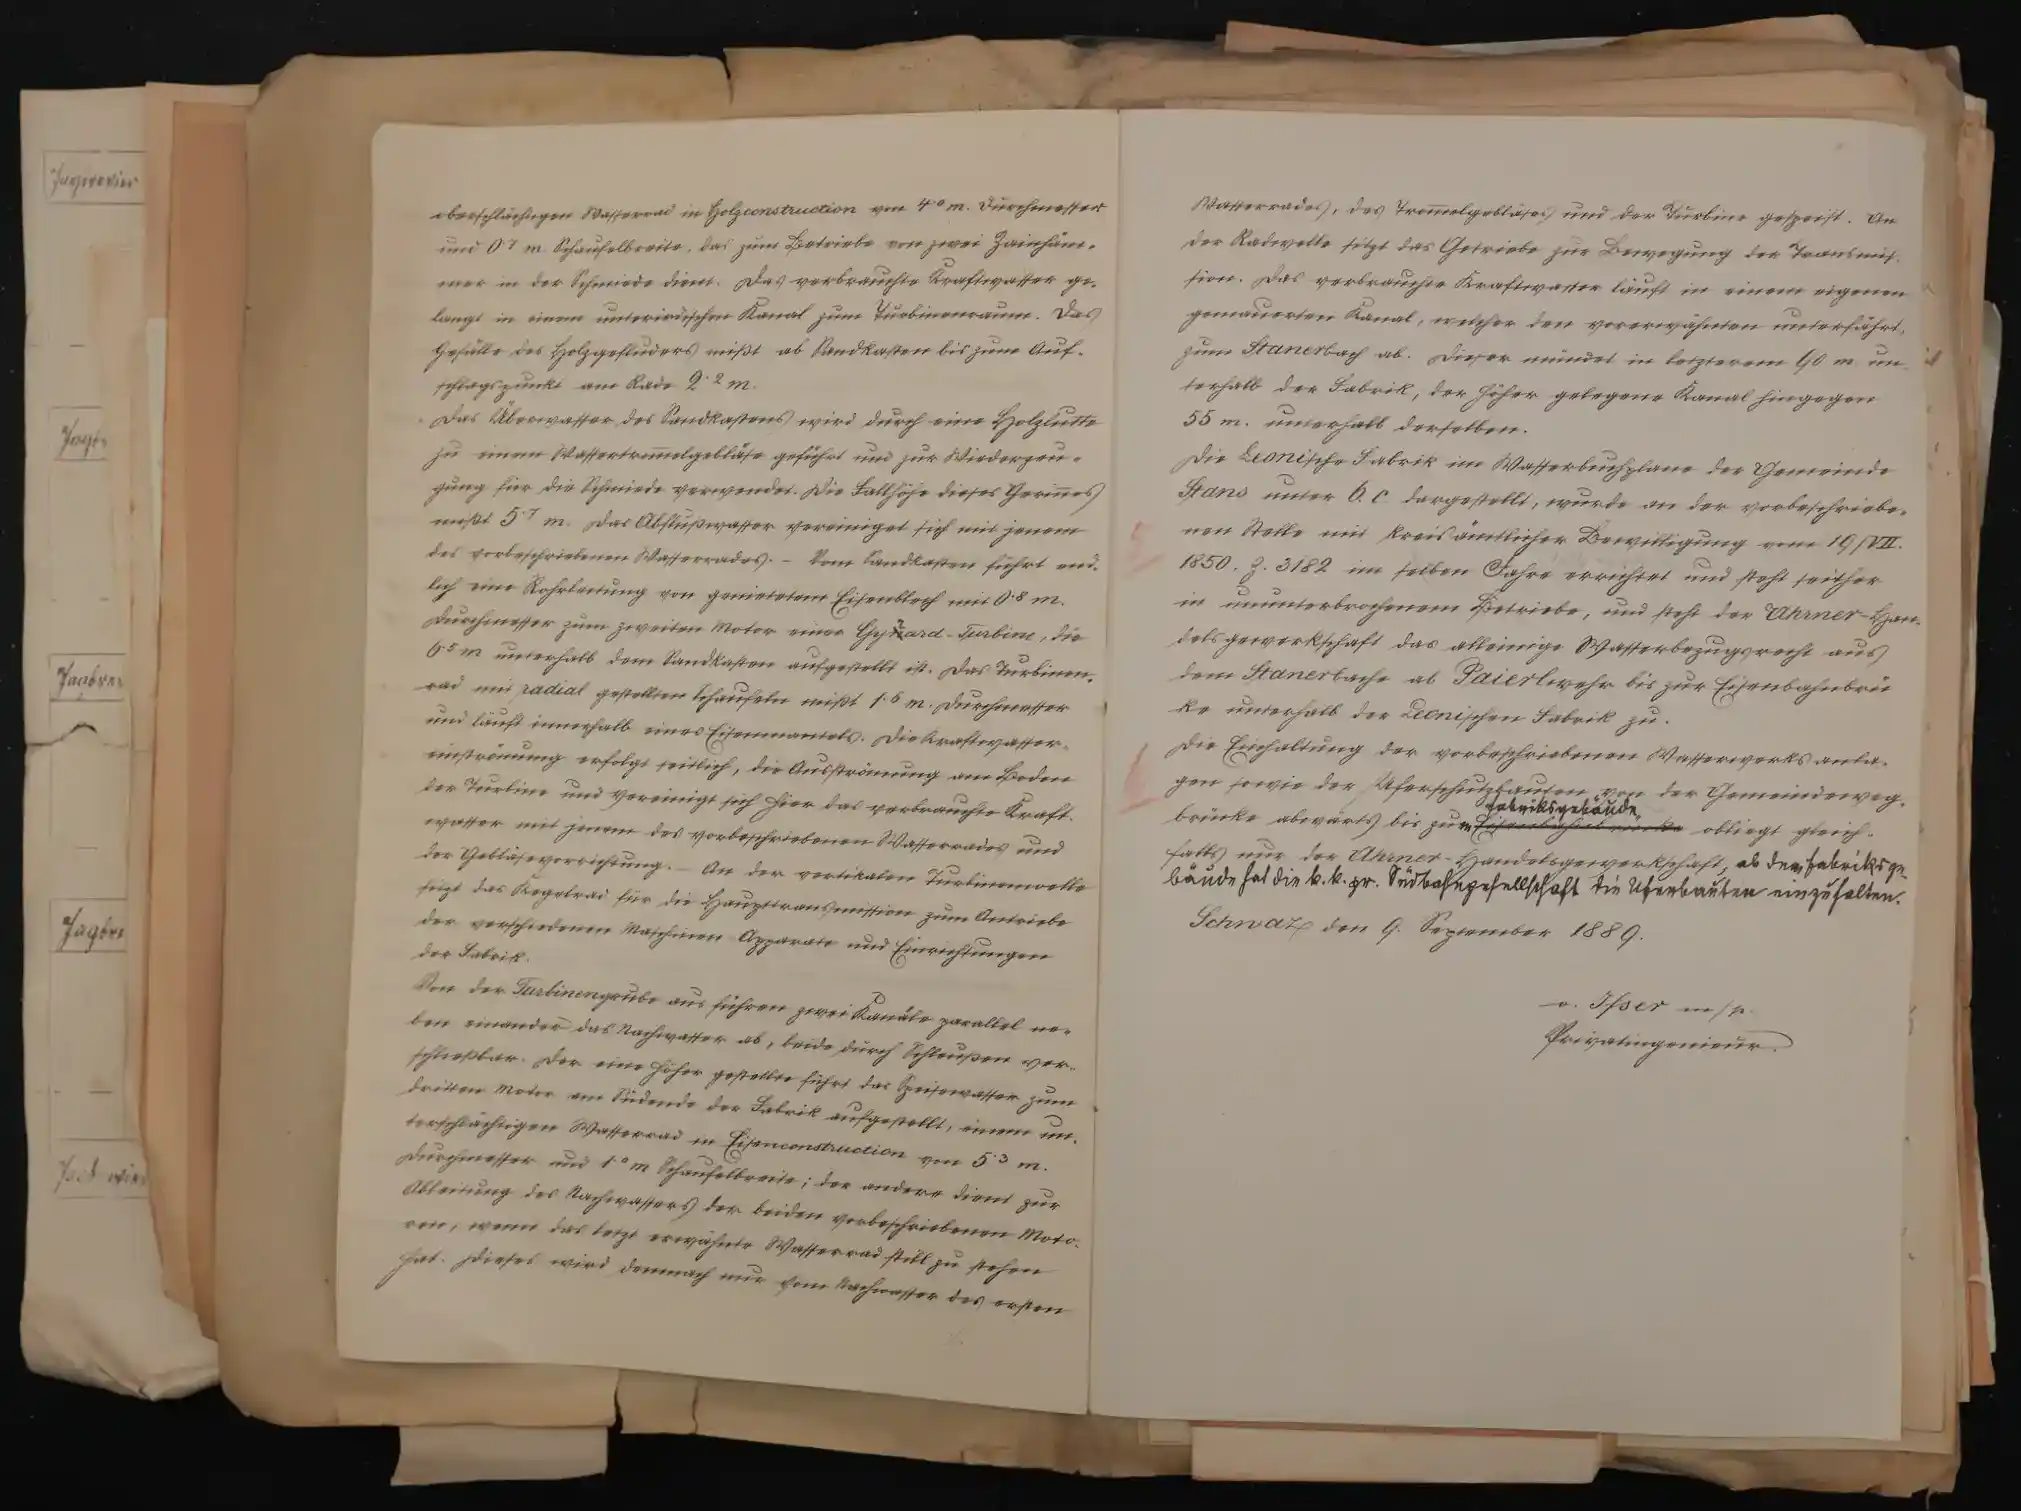 Jagdrevier
Jagdrev
Jagdrev
oberschlächtigen Wasserrad in Holzconstruction von 4·0 m. Durchmesser
und 0·7 m Schaufelbreite, das zum Betriebe von zwei Zainhäm-
mer in der Schmiede dient. Das verbrauchte Kraftwasser ge-
langt in einem unterirdischen Kanal zum Turbinenraum. Das
Gefälle des Holzgefluders mißt ab Sandkasten bis zum Auf-
schlagspunkt am Rade 2·2 m.
Das Überwasser des Sandkastens wird durch eine Holzlutte
zu einem Wassertrom̄elgebläse geführt und zur Winderzeu-
gung für die Schmiede verwendet. Die Fallhöhe dieses Gerin̄es
mißt 5·7 m. Das Abflußwasser vereiniget sich mit jenem
des vorbeschriebenen Wasserrades. – Vom Sandkasten führt end-
lich eine Rohrleitung von genietetem Eisenblech mit 0·8 m.
Durchmesser zum zweiten Motor einer Turbine, die
6·5 m unterhalb dem Sandkasten aufgestellt ist. Das Turbinen-
rad mit radial gestellten Schaufeln mißt 1·6 m. Durchmesser
und läuft innerhalb eines Eisenmantels. Die Kraftwasser-
einströmung erfolgt seitlich, die Ausströmung am Boden
der Turbine und vereinigt sich hier das verbrauchte Kraft-
wasser mit jenem des vorbeschriebenen Wasserrades und
der Gebläsevorrichtung. – An der vertikalen Turbinenwelle
sitzt das Kegelrad für die Haupttransmission zum Antriebe
der verschiedenen Maschinen Apparate und Einrichtungen
der Fabrik.
Von der Turbinengrube aus führen zwei Kanäle parallel ne-
ben einander das Nachwasser ab, beide durch Schleußen ver-
schließbar. Der eine höher gestellte führt das Speisewasser zum
dritten Motor am Südende der Fabrik aufgestellt, einem un-
terschlächtigen Wasserrad in Eisenconstruction von 5·3 m.
Durchmesser und 1·0 m Schaufelbreite; der andere dient zur
Ableitung des Nachwassers der beiden vorbeschriebenen Moto-
ren, wenn das letzt erwähnte Wasserrad still zu stehen
hat. Dieses wird demnach nur vom Nachwasser des ersten
Wasserrades, des Trom̄elgebläses und der Turbine gespeist. An
der Radwelle sitzt das Getriebe zur Bewegung der Transmis-
sion. Das verbrauchte Kraftwasser läuft in einem eigenen
gemauerten Kanal, welcher den vorerwähnten unterfährt,
zum Stanerbach ab. Dieser mündet in letzterem 60 m. un-
terhalb der Fabrik, der höher gelegene Kanal hingegen
55 m. unterhalb derselben.
Die Leonische Fabrik im Wasserbuchplane der Gemeinde
Stans unter 6. c. dargestellt, wurde an der vorbeschriebe-
nen Stelle mit kreisämtlicher Bewilligung vom 19/VII.
1850. Z. 3182 im selben Jahre errichtet und steht seither
in ununterbrochenem Betriebe, und steht der Ahrner-Han-
delsgewerkschaft das alleinige Wasserbezugsrecht aus
dem Stanerbache ab Paierlwehr bis zur Eisenbahnbrü
ke unterhalb der Leonischen Fabrik zu.
Die Einhaltung der vorbeschriebenen Wasserwerksanla-
gen sowie der Uferschutzbauten von der Gemeindeweg-
Fabriksgebäude
brücke abwärts bis zum Eisenbahnbrücke obliegt gleich-
falls nur der Ahrner-Handelsgewerkschaft, ab dem Fabriksge-
bäude hat die k. k. pr. Südbahngesellschaft die Uferbauten einzuhalten.
Schwaz den 9. September 1889.
v. Isser m/p.
Privatingenieur.